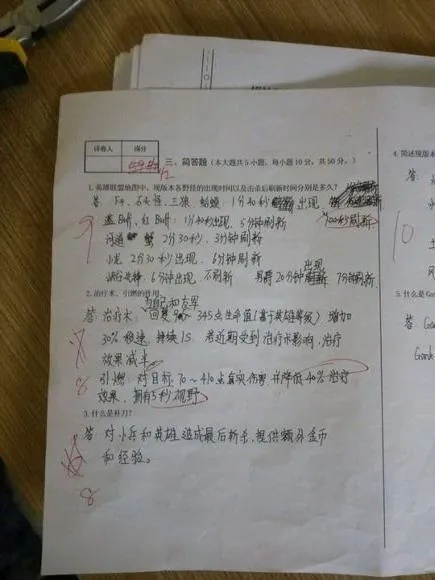 评卷人 得分
三、简答题（本大题共5小题，每小题10分，共50分。）
12
1.英雄联盟地图中，现版本各野怪的出现时间以及击杀后刷新时间分别是多久？
答 F4、石头怪、三狼、蛤蟆：1分40秒 出现
100秒刷新
9
蓝Buff、红Buff：1分40秒出现，5分钟刷新
河道蟹 2分30秒，3分钟刷新
小龙 2分30秒出现，6分钟刷新
峡谷先锋，6分钟出现，不刷新 男爵20分钟出现 7分钟刷新
2.治疗术、引燃的作用
与自己和友军
答 治疗术：回复 345点生命值（基于英雄等级） 增加
30%移速，持续1S. 若近期受到治疗术影响，治疗
效果减半
8
引燃：对目标70～410点真实伤害，并降低40%治疗
效果，拥有5秒视野
3.什么是补刀？
答 对小兵和英雄造成最后斩杀，提供额外金币
和经验。
8
4.简述现版本
答
10
5.什么是Ga
答 Ga
Gank